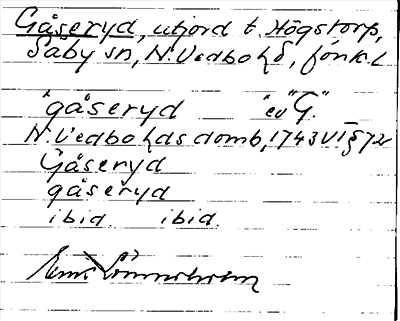 Gåseryd, utjord t. Högstorp,
Säby sn, N. Vedbo hd, Jönk. L
"gåseryd "ev G."
N. Vedbo hds domb, 1743 VI § 72
Gåseryd
gåseryd
ibid. ibid.